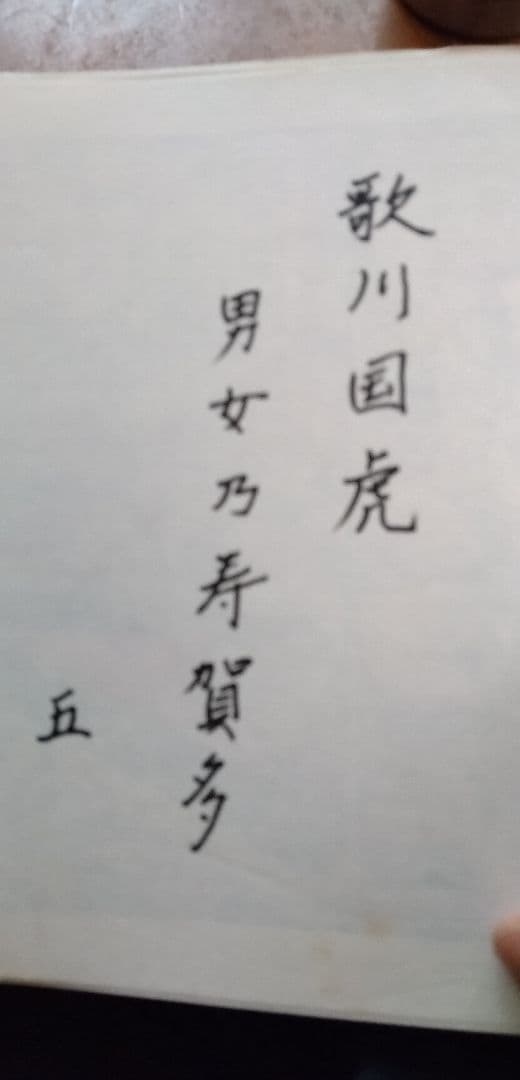 歌川国虎
男女乃寿賀多
五